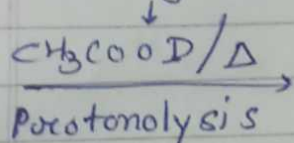 CH₃COOD/Δ
Porotonolysis